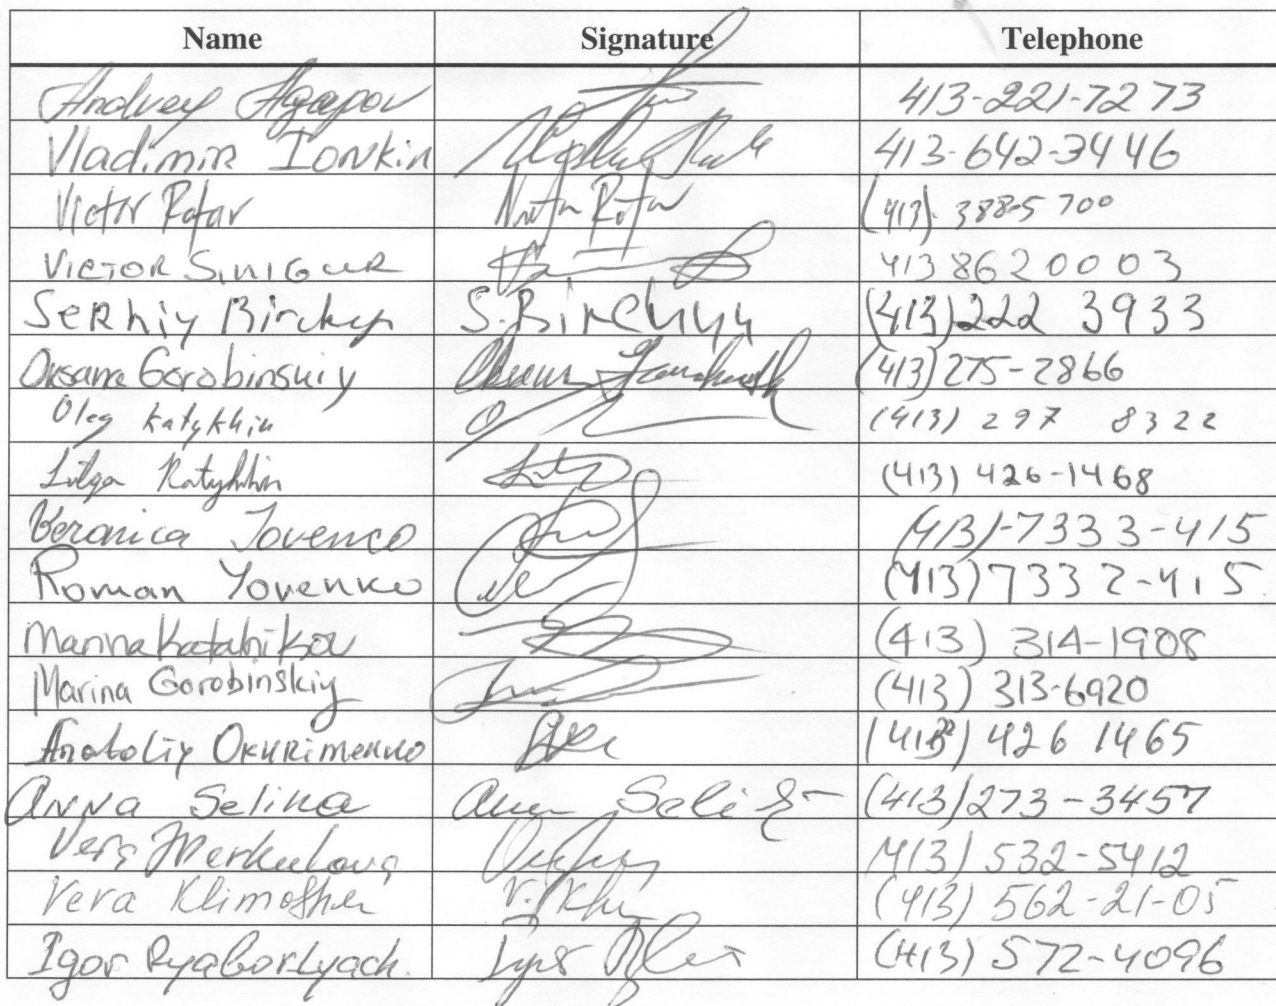 Name Signature Telephone
Andrey Agapov 413-221-7273
Vladimir Ionkin 413-642-3446
Victor Rotar (413) 388-5700
VICTOR SINIGUR 413 862 0003
Serhiy Birchyy S.Birchyy (413)222 3933
Oksana Gorobinskiy (413)275-2866
Oleg Katykhin (413) 297 8322
Katykhin (413) 426-1468
Veronica Iovenco (413)-7333-415
Roman Yovenko (413)7332-415
Marina (413) 314-1908
Marina Gorobinskiy (413) 313-6920
Anatoliy Okhrimenko (413) 426 1465
Anna Selina (413)273-3457
Vera Merkulova (413) 532-5412
Vera (413) 562-21-05
Igor (413) 572-4096